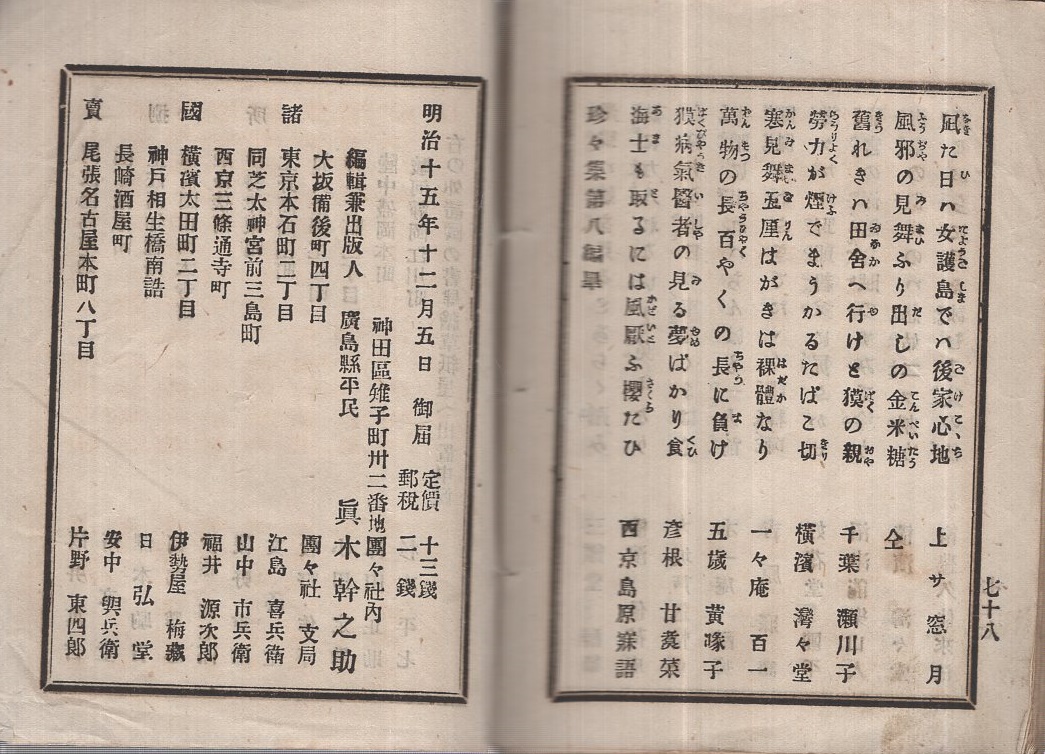 七十八
凪た日ハ女護島でハ後家心地 上サ 窓月
風邪の見舞ふり出しの金米糖 仝
舊れきハ田舍へ行けと獏の親 千葉 瀬川子
勞力が煙でまうかるたばこ切 橫濱 灣々堂
寒見舞五厘はがきは裸體なり 一々庵 百一
萬物の長百やくの長に負け 五歲 黃喙子
獏病氣醫者の見る夢ばかり食 彥根 甘菱菜
海士も取るには風厭ふ櫻たひ 西京島原寐語
珍々集第八編畢
明治十五年十二月五日 御届 定價 十三錢
郵稅 二錢
神田區雉子町卅二番地團々社內
編輯兼出版人 廣島縣平民 眞木幹之助
大坂備後町四丁目 團々社 支局
諸 東京本石町二丁目 江島 喜兵衛
同芝太神宮前三島町 山中 市兵衛
西京三條通寺町 福井 源次郎
國 橫濱太田町二丁目 伊勢屋 梅藏
神戶相生橋南詰 日弘堂
長崎酒屋町 安中 與兵衛
賣 尾張名古屋本町八丁目 片野 東四郎